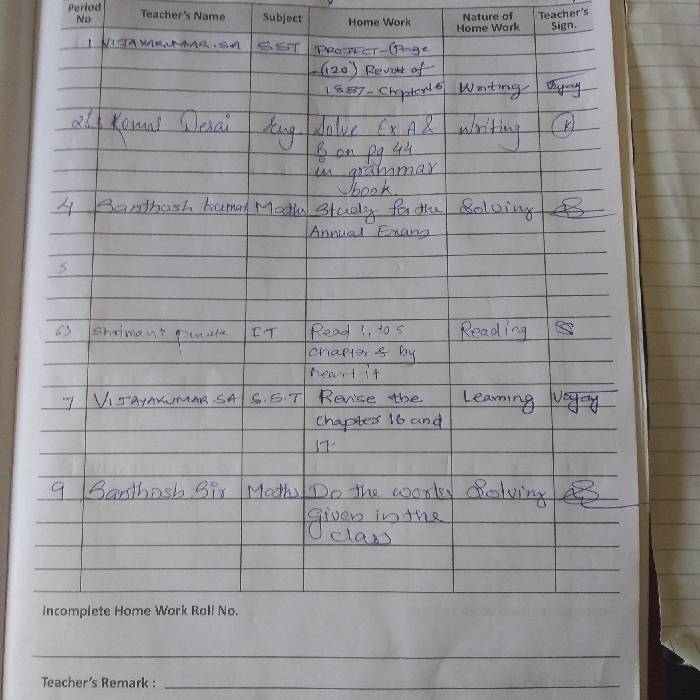 Period No Teacher's Name Subject Home Work Nature of Home Work Teacher's Sign.
1 VIJAYAKUMAR.SA SST PROJECT-(Page
(120) Revolt of
1857-Chapter16 Writing Vijay
Komal Desai Eng Solve Ex A &
B on Pg 44
in grammar
book. Writing K
4 Santhosh kumar Maths Study for the Solving
Annual Exams
5
6) Shrimant IT Read 1, to 5 Reading
chapters by
heart it
7 VIJAYAKUMAR.SA S.S.T Revise the Learning Vijay
Chapter 16 and
17.
9 Santhosh Sir Maths Do the works Solving
Given in the
class
Incomplete Home Work Roll No.
Teacher's Remark :